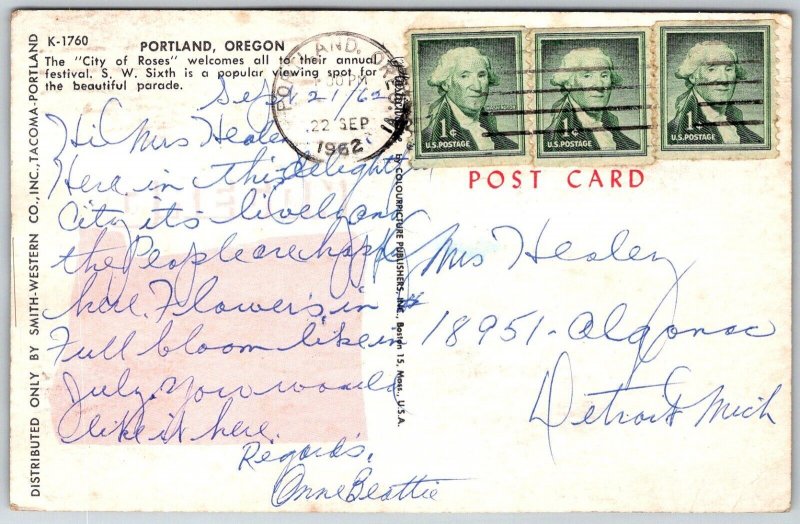 K-1760
PORTLAND, OREGON
The "City of Roses" welcomes all to their annual
festival. S. W. Sixth is a popular viewing spot for
the beautiful parade.
DISTRIBUTED ONLY BY SMITH-WESTERN CO., INC., TACOMA-PORTLAND
BY COLOURPICTURE PUBLISHERS, INC., Boston 15, Mass., U.S.A.
PORTLAND, OREG.
PM
22 SEP
1962
1¢
U.S. POSTAGE
1¢
U.S. POSTAGE
1¢
U.S. POSTAGE
POST CARD
Sept 21/62
Hi Mrs Healey
Here in this delightful
City its lively and
the People are happy
here. Flowers in
Full bloom like in
July. You would
like it here.
Regards,
Anne Beattie
Mrs Healey
18951-Algonac
Detroit Mich